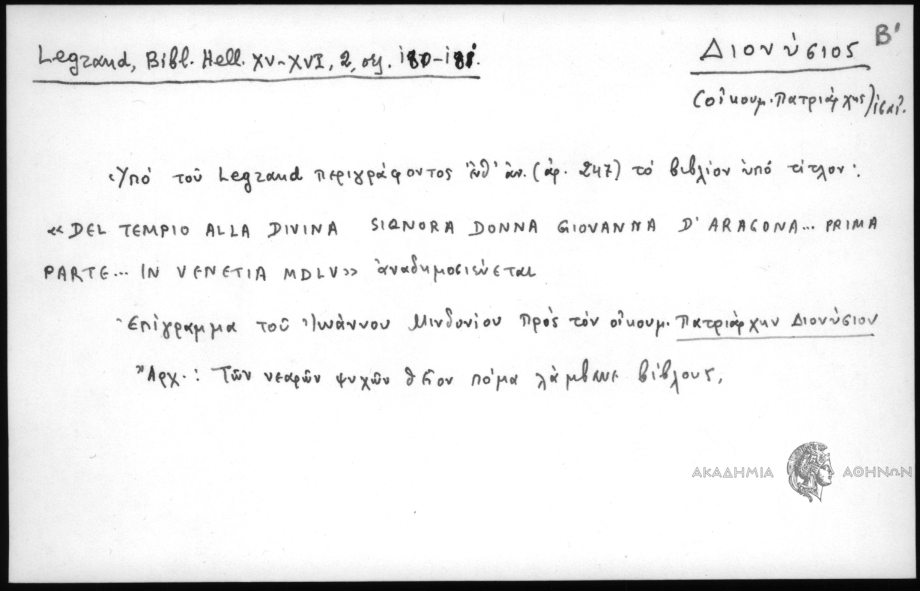 Legrand, Bibl. Hell. XV-XVI, 2, σελ. 180-181.
Διονύσιος Β'
(οἰκουμ. Πατριάρχης)
Ὑπό τοῦ Legrand περιγράφοντος ἐνθ' ἀν. (ἀρ. 247) τό βιβλίον ὑπό τίτλον:
«DEL TEMPIO ALLA DIVINA SIGNORA DONNA GIOVANNA D'ARAGONA... PRIMA
PARTE... IN VENETIA MDLV» ἀναδημοσιεύεται
Ἐπίγραμμα τοῦ Ἰωάννου Μινδονίου πρός τόν οἰκουμ. Πατριάρχην Διονύσιον
Ἀρχ.: Τῶν νεαρῶν ψυχῶν θεῖον πόμα λάμβανε βίβλους,
ΑΚΑΔΗΜΙΑ ΑΘΗΝΩΝ